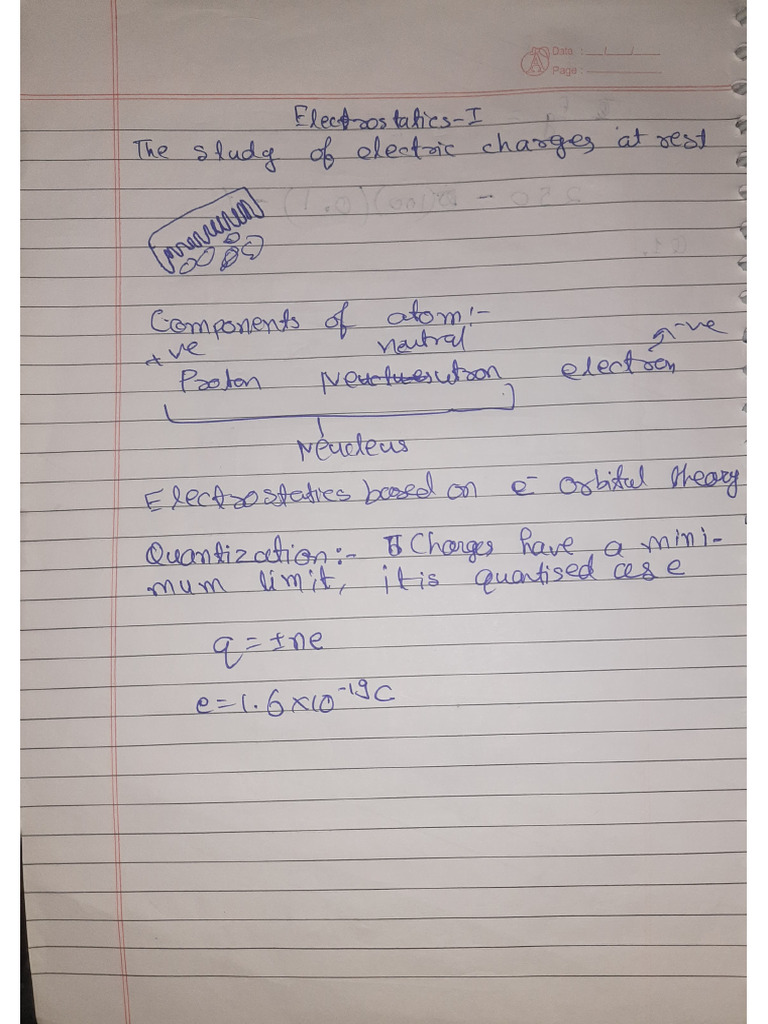 Date : __/__/__
Page :
Electrostatics-I
The study of electric charges at rest
Components of atom:-
+ve neutral -ve
Proton Neutron electron
Neucleus
Electrostatics based on e⁻ orbital theory
Quantization:- Charges have a mini-
mum limit, it is quantised as e
q=±ne
e=1.6×10⁻¹⁹C